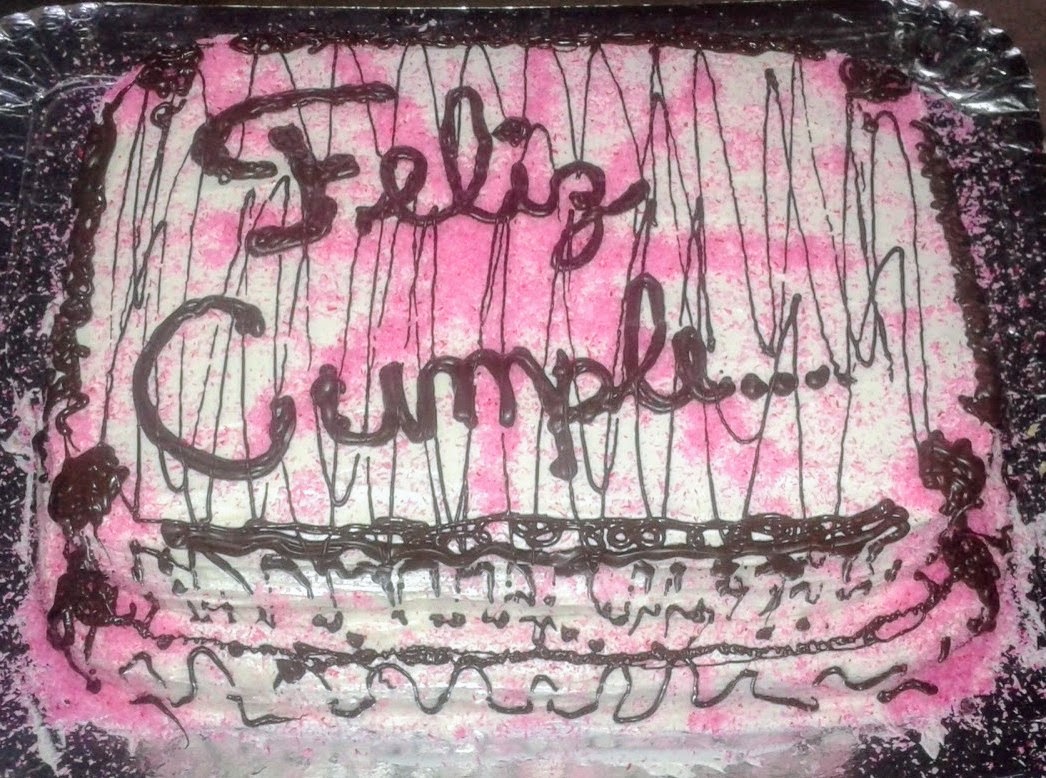 Feliz
Cumple....